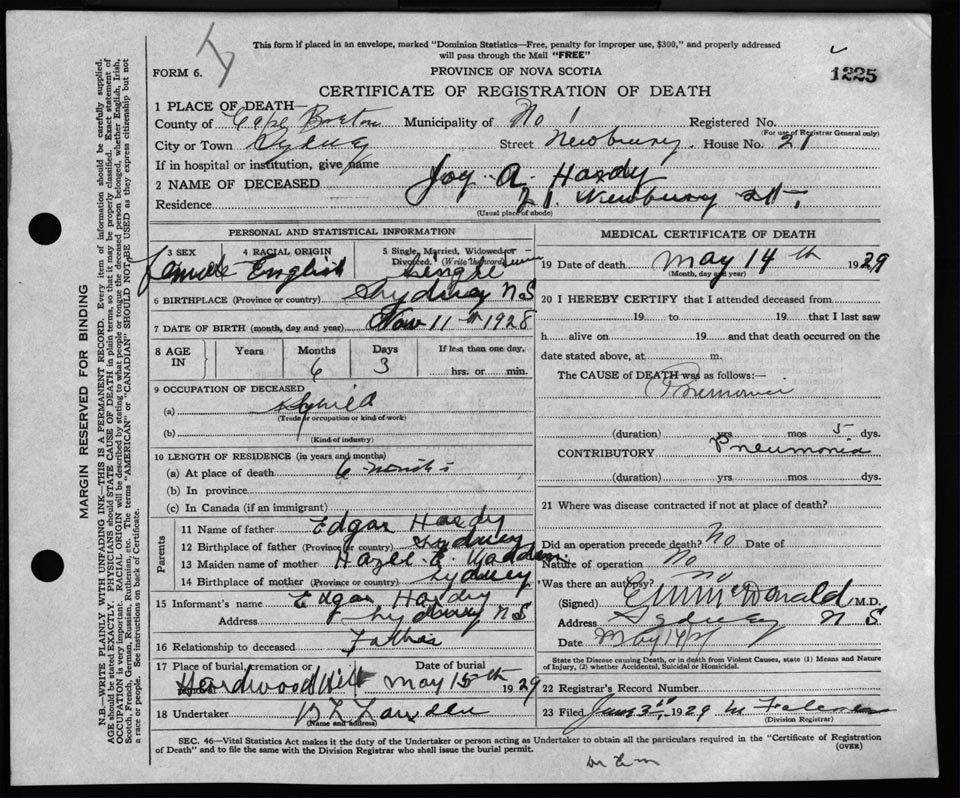 This form if placed in an envelope, marked "Dominion Statistics—Free, penalty for improper use, $300," and properly addressed
will pass through the Mail "FREE"
FORM 6.
PROVINCE OF NOVA SCOTIA
1225
CERTIFICATE OF REGISTRATION OF DEATH
1 PLACE OF DEATH—
County of Cape Breton Municipality of No 1 Registered No.
(For use of Registrar General only)
City or Town Sydney Street Newbury. House No. 21
If in hospital or institution, give name
2 NAME OF DECEASED Joy A. Hardy
Residence 21 Newbury St.
(Usual place of abode)
PERSONAL AND STATISTICAL INFORMATION
3 SEX 4 RACIAL ORIGIN 5 Single, Married, Widowed or
Divorced. (Write the word)
Female English Single
6 BIRTHPLACE (Province or country) Sydney N S
7 DATE OF BIRTH (month, day and year) Nov 11th 1928
8 AGE IN Years Months Days If less than one day,
6 3 hrs. or min.
9 OCCUPATION OF DECEASED
(a)
(Trade or occupation or kind of work)
(b)
(Kind of industry)
10 LENGTH OF RESIDENCE (in years and months)
(a) At place of death 6 months
(b) In province
(c) In Canada (if an immigrant)
Parents
11 Name of father Edgar Hardy
12 Birthplace of father (Province or country) Sydney
13 Maiden name of mother Hazel
14 Birthplace of mother (Province or country) Sydney
15 Informant's name Edgar Hardy
Address Sydney N S
16 Relationship to deceased Father
17 Place of burial, cremation or Date of burial
Hardwood Hill May 15th 1929
18 Undertaker
(Name and address)
MEDICAL CERTIFICATE OF DEATH
19 Date of death May 14th 1929
(Month, day and year)
20 I HEREBY CERTIFY that I attended deceased from
19 to 19 that I last saw
h alive on 19 and that death occurred on the
date stated above, at m.
The CAUSE of DEATH was as follows:—
Pneumonia
(duration) yrs mos 5 dys.
CONTRIBUTORY Pneumonia
(duration) yrs mos dys.
21 Where was disease contracted if not at place of death?
Did an operation precede death? No Date of
Nature of operation No
Was there an autopsy? no
(Signed) McDonald M.D.
Address Sydney N S
Date May 14/29
State the Disease causing Death, or in death from Violent Causes, state (1) Means and Nature
of Injury, (2) whether Accidental, Suicidal or Homicidal.
22 Registrar's Record Number
23 Filed June 3rd, 1929
(Division Registrar)
SEC. 46—Vital Statistics Act makes it the duty of the Undertaker or person acting as Undertaker to obtain all the particulars required in the "Certificate of Registration
of Death" and to file the same with the Division Registrar who shall issue the burial permit.
(OVER)
MARGIN RESERVED FOR BINDING
N.B.—WRITE PLAINLY WITH UNFADING INK—THIS IS A PERMANENT RECORD. Every item of information should be carefully supplied.
AGE should be stated EXACTLY. PHYSICIANS should STATE CAUSE OF DEATH in plain terms, so that it may be properly classified. Exact statement of
OCCUPATION is very important. RACIAL ORIGIN will be described by stating to what people or tongue the deceased person belonged, whether English, Irish,
Scotch, French, German, Russian, Ruthenian, etc. The terms "AMERICAN" or "CANADIAN" SHOULD NOT BE USED as they express citizenship but not
a race or people. See instructions on back of Certificate.